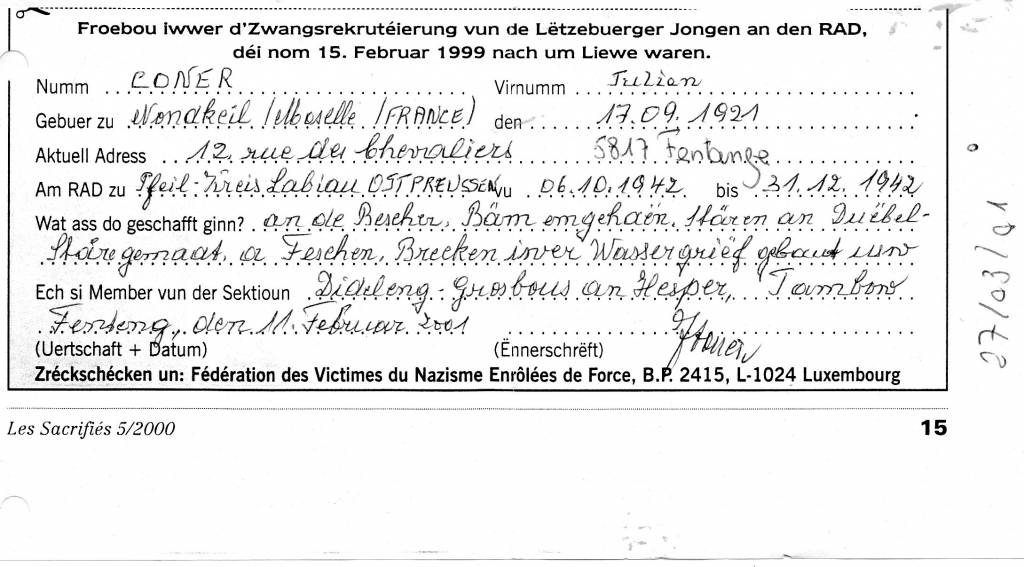 Froebou iwwer d'Zwangsrekrutéierung vun de Lëtzebuerger Jongen an den RAD,
déi nom 15. Februar 1999 nach um Liewe waren.
Numm CONER Virnumm Julien
Gebuer zu Nondkeil /Moselle /FRANCE) den 17.09.1921
Aktuell Adress 12, rue des Chevaliers 5817 Fentange
Am RAD zu Pfeil-Kreis Labiau OSTPREUSSEN vu 06.10.1942 bis 31.12.1942
Wat ass do geschafft ginn? an de Bescher, Bäm emgehaën, Stären an Duëbel-
Stäre gemaat, a Feschen, Brecken iwer Wassergrief gebaut
Ech si Member vun der Sektioun Dideleng-Grosbous an Hesper, Tambow
Fenteng, den 11. Februar 2001
(Uertschaft + Datum) (Ënnerschrëft)
Zréckschécken un: Fédération des Victimes du Nazisme Enrôlées de Force, B.P. 2415, L-1024 Luxembourg
Les Sacrifiés 5/2000 15
27/03/01